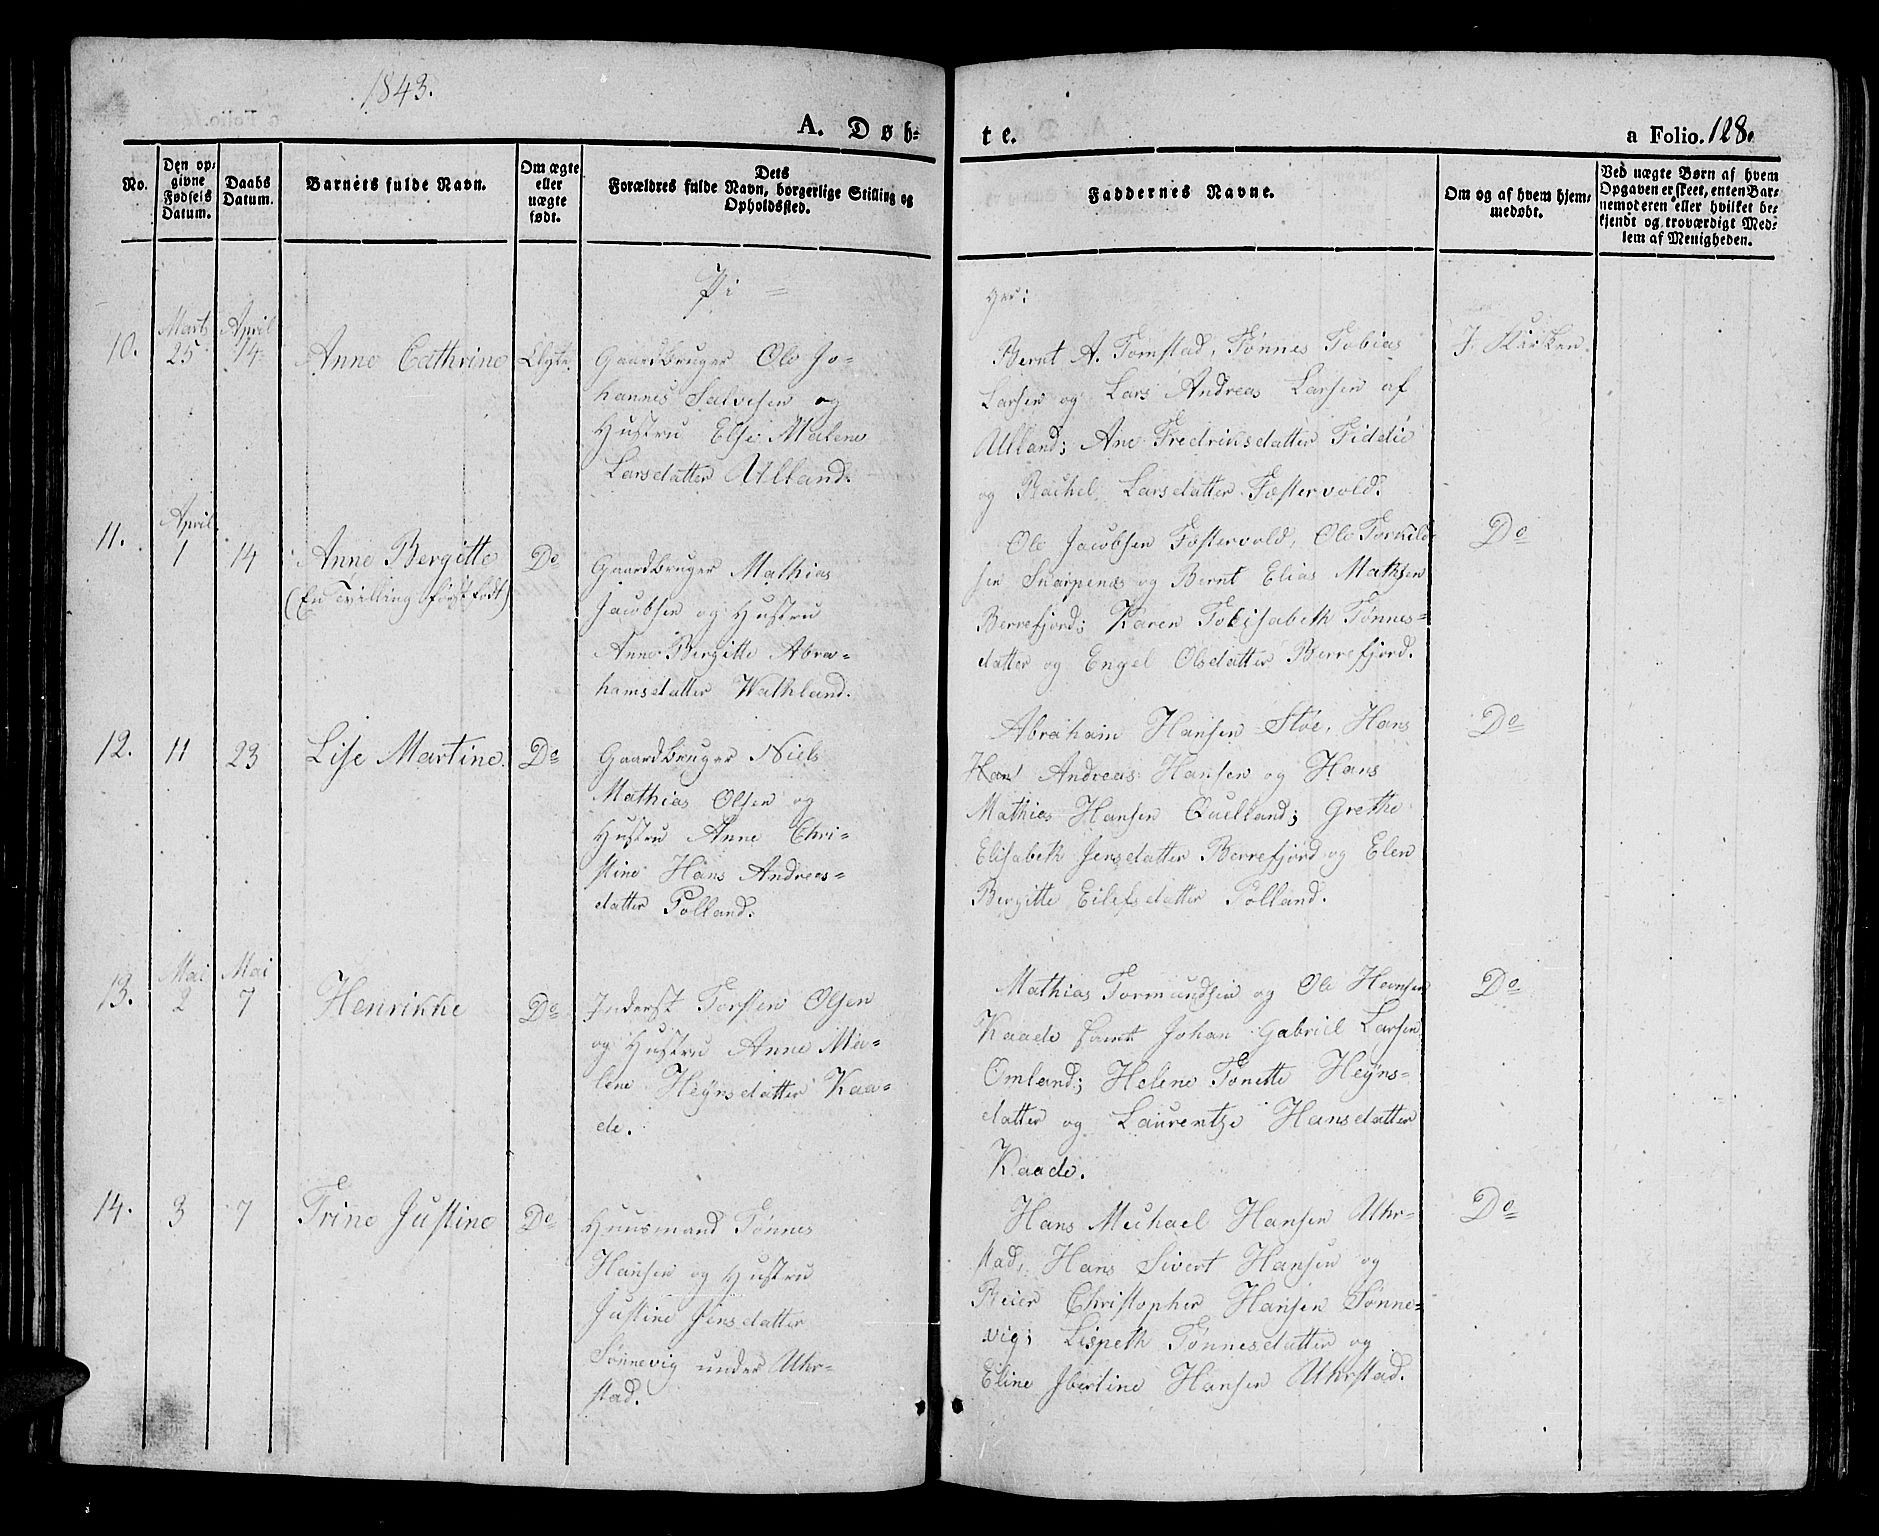 1843.
A. Døb-
te.
a Folio. 128.
No.
Den op-
givne
Fødsels
Datum.
Daabs
Datum.
Barnets fulde Navn.
Om ægte
eller
uægte
født.
Dets
Forældres fulde Navn, borgerlige Stilling og
Opholdssted.
Faddernes Navne.
Om og af hvem hjem-
medøbt.
Ved uægte Børn af hvem
Opgaven er skeet, enten Bar-
nemoderen eller hvilket be-
kjendt og troværdigt Med-
lem af Menigheden.
Pi =
ger:
10.
Marts
25
April
14
Anne Cathrine
Ægte.
Gaardbruger Ole Jo-
hannes Salvesen og
Hustru Else Malene
Larsdatter Ulland.
Bernt A. Tomstad, Tønnes Tobias
Larsen og Lars Andreas Larsen af
Ulland; Ane Fredriksdatter Fiddie
og Rachel Larsdatter Fæstervold.
I Kirken.
11.
April
1
14
Anne Bergitte
(En Tvilling først født)
Do
Gaardbruger Mathias
Jacobsen og Hustru
Anne Bergitte Abra-
hamsdatter Wathland.
Ole Jacobsen Fæstervold, Ole Torkild-
sen Snarpenæs og Bernt Elias Mathsen
Berrefjord; Karen Tolisabeth Tønnes-
datter og Engel Olsdatter Berrefjord.
Do
12.
11
23
Lise Martine.
Do
Gaardbruger Niels
Mathias Olsen og
Hustru Anne Chri-
stine Hans Andreas-
datter Tolland.
Abraham Hansen Støe, Hans
Hans Andreas Hansen og Hans
Mathias Hansen Quelland; Grethe
Elisabeth Jensdatter Berrefjord og Elen
Bergitte Eilefsdatter Tolland.
Do
13.
Mai
2
Mai
7
Henrikke
Do
Inderst Torsten Olsen
og Hustru Anne Ma-
lene Heÿnsdatter Kaa-
de.
Mathias Tormundsen og Ole Heinsen
Kaade samt Johan Gabriel Larsen
Omland; Helene Tonette Heÿns-
datter og Laurentze Hansdatter
Kaade.
Do
14.
3
7
Trine Justine
Do
Huusmand Tønnes
Hansen og Hustru
Justine Jensdatter
Sønnevig under Uhr-
stad.
Hans Michael Hansen Uhr-
stad, Hans Sivert Hansen og
Reier Christopher Hansen Sønne-
vig; Lispeth Tønnesdatter og
Eline Ibertine Hansen Uhrstad.
Do